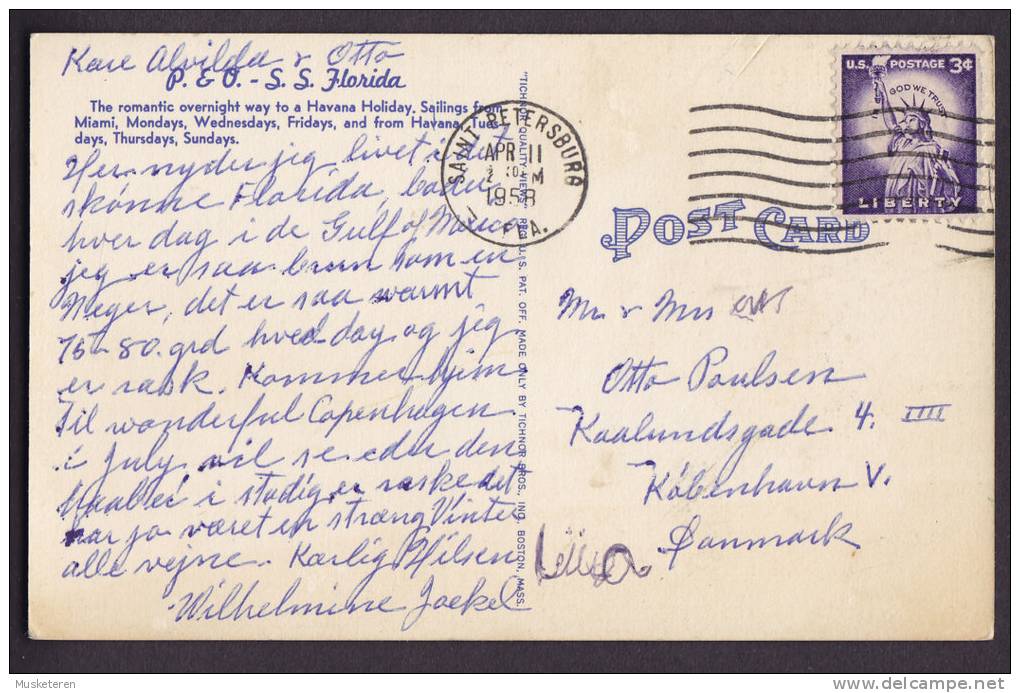 Kære Alvilda & Otto
P. & O. - S. S. Florida
The romantic overnight way to a Havana Holiday. Sailings from
Miami, Mondays, Wednesdays, Fridays, and from Havana, Tues-
days, Thursdays, Sundays.
Her nyder jeg livet i det
skønne Florida, bader
hver dag i de Gulf of Mexico
jeg er saa brun som en
Neger, det er saa warmt
75-80. grd hved day og jeg
er rask. Kommer hjem
Til wonderful Copenhagen
i July vil se eder den
Haaber i stadig er raske det
har jo været en stræng Vinter
alle vejne. Kærlig Hilsen
Wilhelmine Jaekel
"TICHNOR QUALITY VIEWS," REG. U. S. PAT. OFF. MADE ONLY BY TICHNOR BROS., INC. BOSTON, MASS.
SAINT PETERSBURG
APR 11
2 PM
1958
FLA.
U.S. POSTAGE 3¢
IN GOD WE TRUST
LIBERTY
POST CARD
Mr & Mrs
Otto Poulsen
Kaalundsgade 4. IIII
København V.
Danmark
Musketeren
delcampe.net